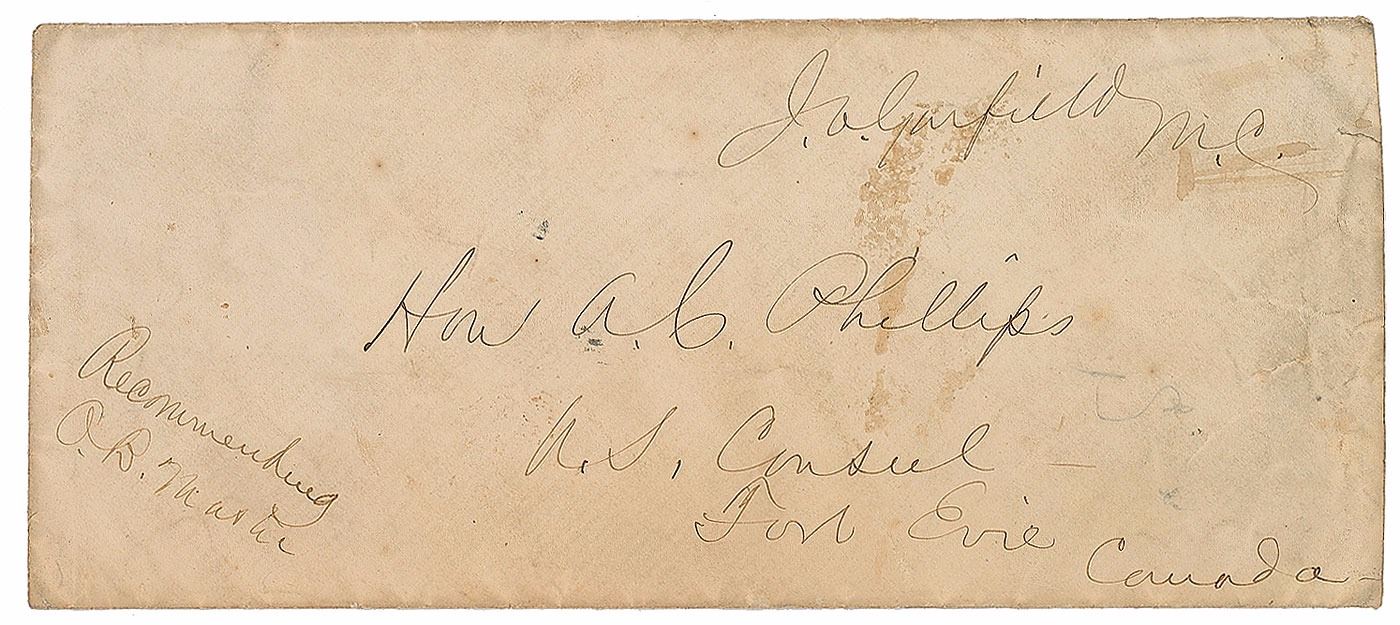 J. A. Garfield M.C.
Hon A. C. Phillips
U.S. Consul
Fort Erie
Canada
Recommending
O. B.